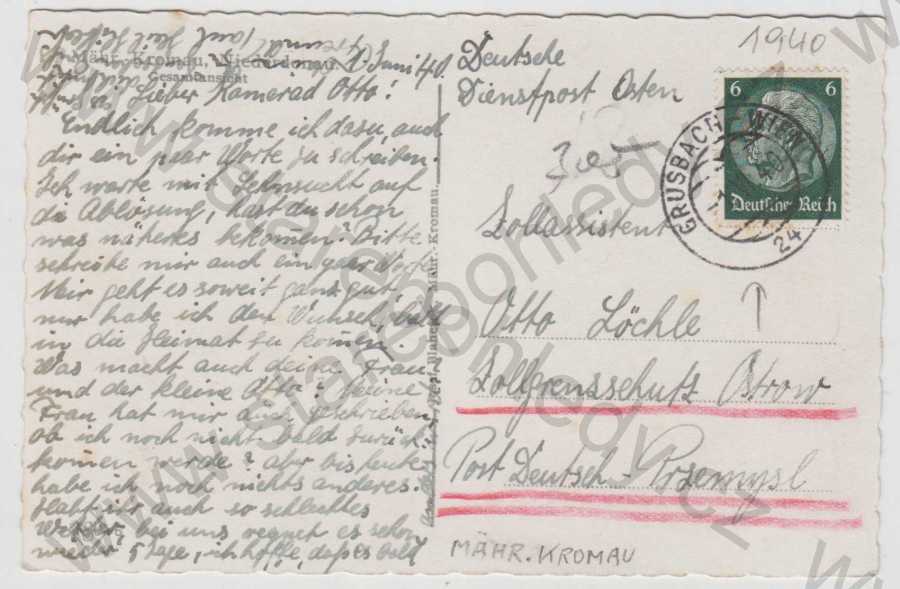 Mähr. Kromau, Niederdonau
Gesamtansicht
Juni 40.
Lieber Kamerad Otto!
Endlich komme ich dazu, auch
dir ein paar Worte zu schreiben.
Ich warte mit Sehnsucht auf
die Ablösung, hast du schon
was näheres bekommen? Bitte
schreibe mir auch ein paar Worte
Mir geht es soweit ganz gut,
nur habe ich den Wunsch, bald
in die Heimat zu kommen.
Was macht auch deine Frau
und der kleine Otto? Meine
Frau hat mir auch geschrieben
ob ich noch nicht bald zurück
komen werde? aber bis heute
habe ich noch nichts anderes.
Habt ihr auch so schlechtes
Wetter, bei uns regnet es schon
wieder 5 Tage, ich hoffe, daß es bald
Mähr. Kromau.
1940
Deutsche
Dienstpost Osten
6 6
Deutsches Reich
GRUSBACH - WIEN
24
Zollassistent
Otto Löchle
Zollgrenzschutz Ostrow
Post Deutsch-Przemysl
MÄHR. KROMAU
www.starepohledy.cz